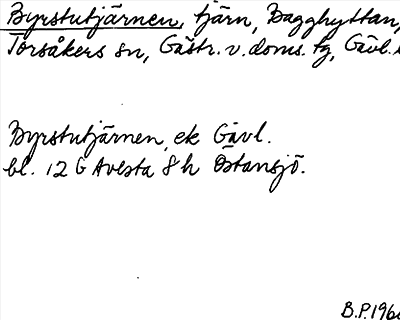 Byrstutjärnen, tjärn, Bagghyttan,
Torsåkers sn, Gästr. v. doms. tg, Gävl.
Byrstutjärnen, ek Gävl.
bl. 12 G Avesta 8 h Östansjö.
B.P.196